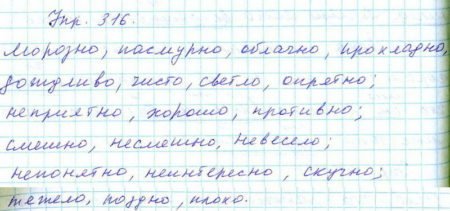 Упр. 316.
Морозно, пасмурно, облачно, прохладно,
дождливо, чисто, светло, опрятно;
неприятно, хорошо, противно;
смешно, несмешно, невесело;
непонятно, неинтересно, скучно;
тяжело, поздно, плохо.